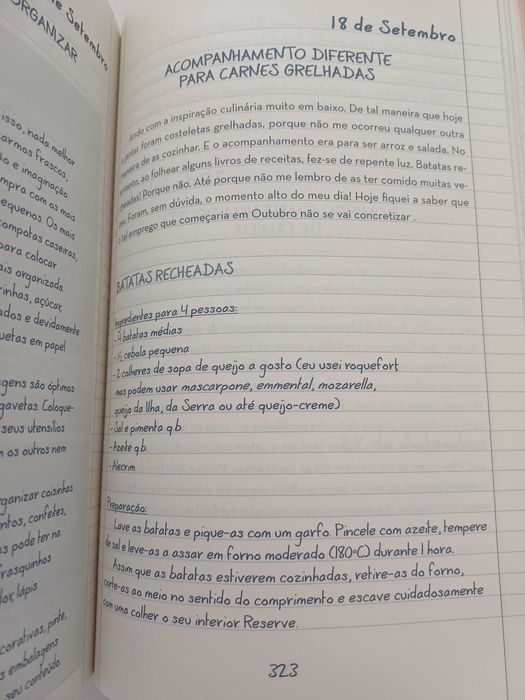 de Setembro
ORGANIZAR
isso, nada melhor
armos frascos,
o e imaginação
mpra com os mais
equenos. Os mais
compotas caseiras,
para colocar
ais organizada
rinhas, açúcar,
ados e devidamente
uetas em papel
gens são óptimos
gavetas. Coloque-
seus utensílios
os outros nem
ganizar coisinhas
ntos, confeites,
s pode ter na
frasquinhos
lor, lápis
corativas, pinte,
s embalagens
seu conteúdo
18 de Setembro
ACOMPANHAMENTO DIFERENTE
PARA CARNES GRELHADAS
Ando com a inspiração culinária muito em baixo. De tal maneira que hoje
o jantar foram costeletas grelhadas, porque não me ocorreu qualquer outra
maneira de as cozinhar. E o acompanhamento era para ser arroz e salada. No
entanto, ao folhear alguns livros de receitas, fez-se de repente luz. Batatas re-
cheadas! Porque não. Até porque não me lembro de as ter comido muitas ve-
zes. Foram, sem dúvida, o momento alto do meu dia! Hoje fiquei a saber que
o tal emprego que começaria em Outubro não se vai concretizar .
BATATAS RECHEADAS
Ingredientes para 4 pessoas:
- 4 batatas médias
- ½ cebola pequena
- 2 colheres de sopa de queijo a gosto (eu usei roquefort
mas podem usar mascarpone, emmental, mozarella,
queijo da Ilha, da Serra ou até queijo-creme)
- Sal e pimenta q.b.
- Azeite q.b.
- Alecrim
Preparação:
Lave as batatas e pique-as com um garfo. Pincele com azeite, tempere
de sal e leve-as a assar em forno moderado (180ºC) durante 1 hora.
Assim que as batatas estiverem cozinhadas, retire-as do forno,
corte-as ao meio no sentido do comprimento e escave cuidadosamente
com uma colher o seu interior Reserve.
323